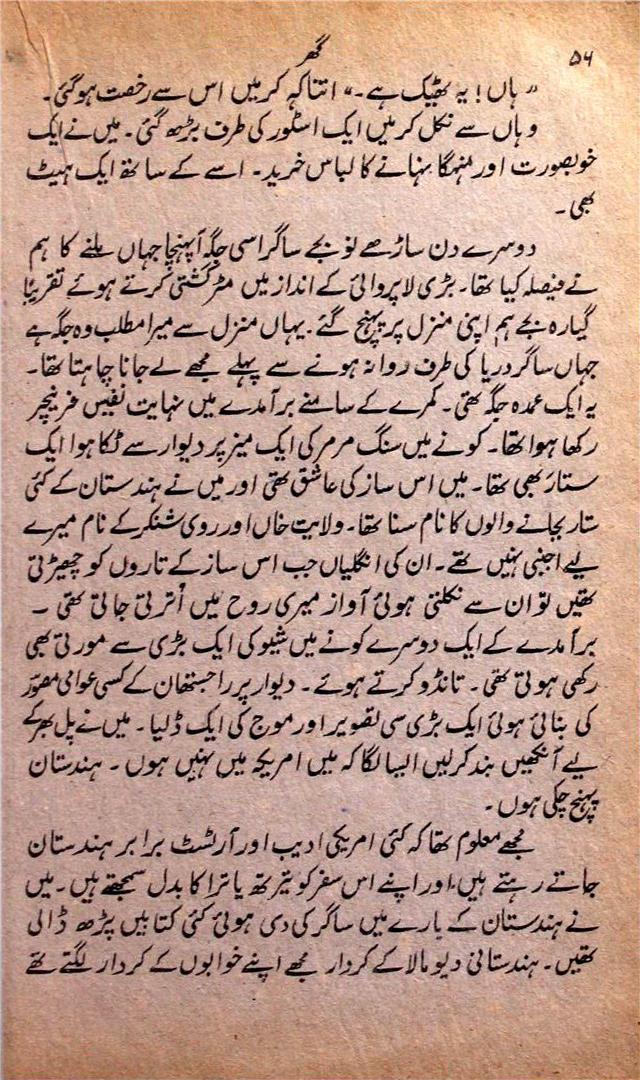 ۵۶
گھر
”ہاں! یہ ٹھیک ہے۔“ اتنا کہہ کر میں اس سے رخصت ہوگئی۔
وہاں سے نکل کر میں ایک اسٹور کی طرف بڑھ گئی۔ میں نے ایک
خوبصورت اور مہنگا نہانے کا لباس خرید۔ اسے کے ساتھ ایک ہیٹ
بھی۔
دوسرے دن ساڑھے نو بجے ساگر اسی جگہ آ پہنچا جہاں ملنے کا ہم
نے فیصلہ کیا تھا۔ بڑی لاپروائی کے انداز میں مٹرگشتی کرتے ہوئے تقریباً
گیارہ بجے ہم اپنی منزل پر پہنچ گئے۔ یہاں منزل سے میرا مطلب وہ جگہ ہے
جہاں ساگر دریا کی طرف روانہ ہونے سے پہلے مجھے لے جانا چاہتا تھا۔
یہ ایک عمدہ جگہ تھی۔ کمرے کے سامنے برآمدے میں نہایت نفیس فرنیچر
رکھا ہوا تھا۔ کونے میں سنگ مرمر کی ایک میز پر دیوار سے ٹکا ہوا ایک
ستار بھی تھا۔ میں اس ساز کی عاشق تھی اور میں نے ہندستان کے کئی
ستار بجانے والوں کا نام سنا تھا۔ ولایت خاں اور روی شنکر کے نام میرے
لیے اجنبی نہیں تھے۔ ان کی انگلیاں جب اس ساز کے تاروں کو چھیڑتی
تھیں تو ان سے نکلتی ہوئی آواز میری روح میں اُترتی جاتی تھی۔
برآمدے کے ایک دوسرے کونے میں شیو کی ایک بڑی سے مورتی بھی
رکھی ہوئی تھی۔ تانڈو کرتے ہوئے۔ دیوار پر راجستھان کے کسی عوامی مصوّر
کی بنائی ہوئی ایک بڑی سی تصویر اور موج کی ایک ڈلیا۔ میں نے پل بھر کے
لیے آنکھیں بند کرلیں ایسا لگا کہ میں امریکہ میں نہیں ہوں۔ ہندستان
پہنچ چکی ہوں۔
مجھے معلوم تھا کہ کئی امریکی ادیب اور آرٹسٹ برابر ہندستان
جاتے رہتے ہیں اور اپنے اس سفر کو تیرتھ یاترا کا بدل سمجھتے ہیں۔ میں
نے ہندستان کے بارے میں ساگر کی دی ہوئی کئی کتابیں پڑھ ڈالی
تھیں۔ ہندستانی دیومالا کے کردار مجھے اپنے خوابوں کے کردار لگتے تھے